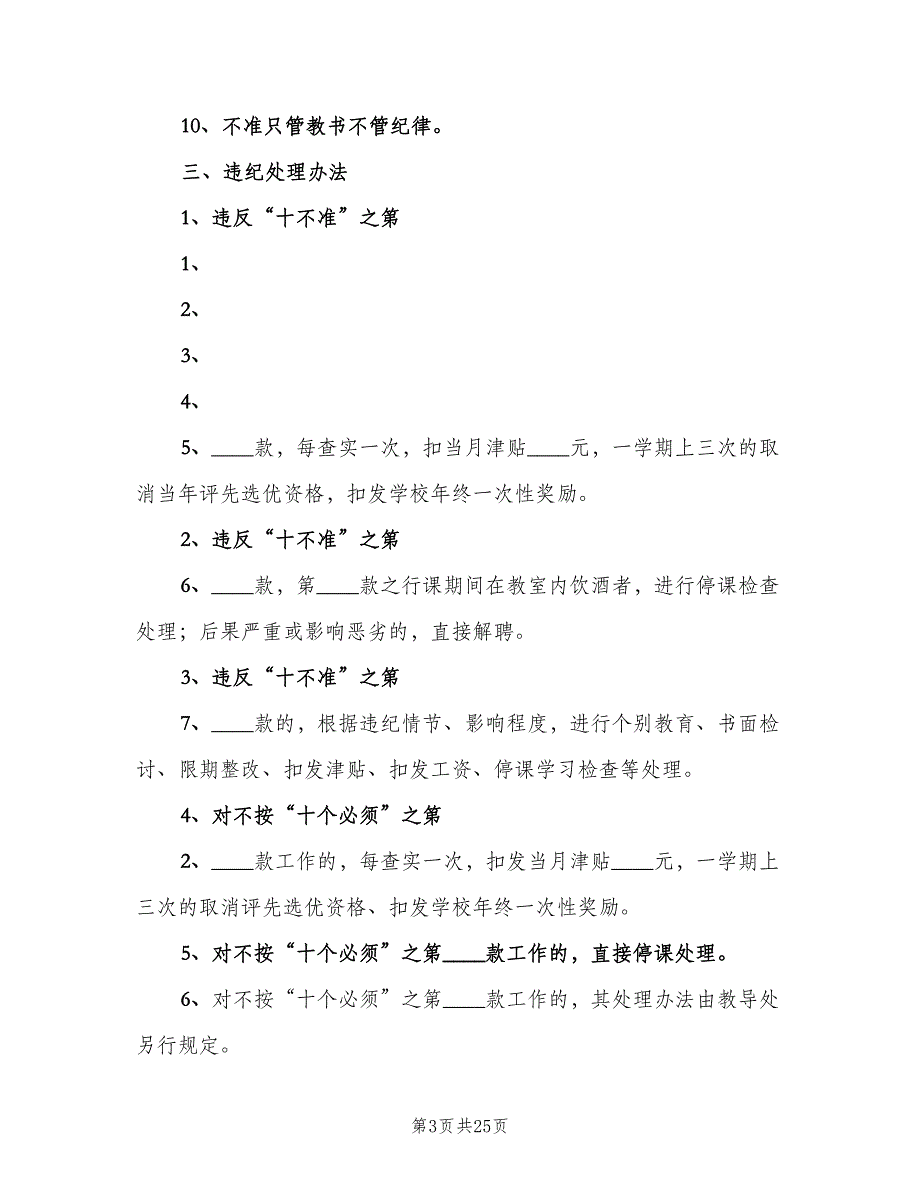 10、不准只管教书不管纪律。
三、违纪处理办法
1、违反“十不准”之第
1、
2、
3、
4、
5、____款，每查实一次，扣当月津贴____元，一学期上三次的取
消当年评先选优资格，扣发学校年终一次性奖励。
2、违反“十不准”之第
6、____款，第____款之行课期间在教室内饮酒者，进行停课检查
处理；后果严重或影响恶劣的，直接解聘。
3、违反“十不准”之第
7、____款的，根据违纪情节、影响程度，进行个别教育、书面检
讨、限期整改、扣发津贴、扣发工资、停课学习检查等处理。
4、对不按“十个必须”之第
2、____款工作的，每查实一次，扣发当月津贴____元，一学期上
三次的取消评先选优资格、扣发学校年终一次性奖励。
5、对不按“十个必须”之第____款工作的，直接停课处理。
6、对不按“十个必须”之第____款工作的，其处理办法由教导处
另行规定。
第3页共25页